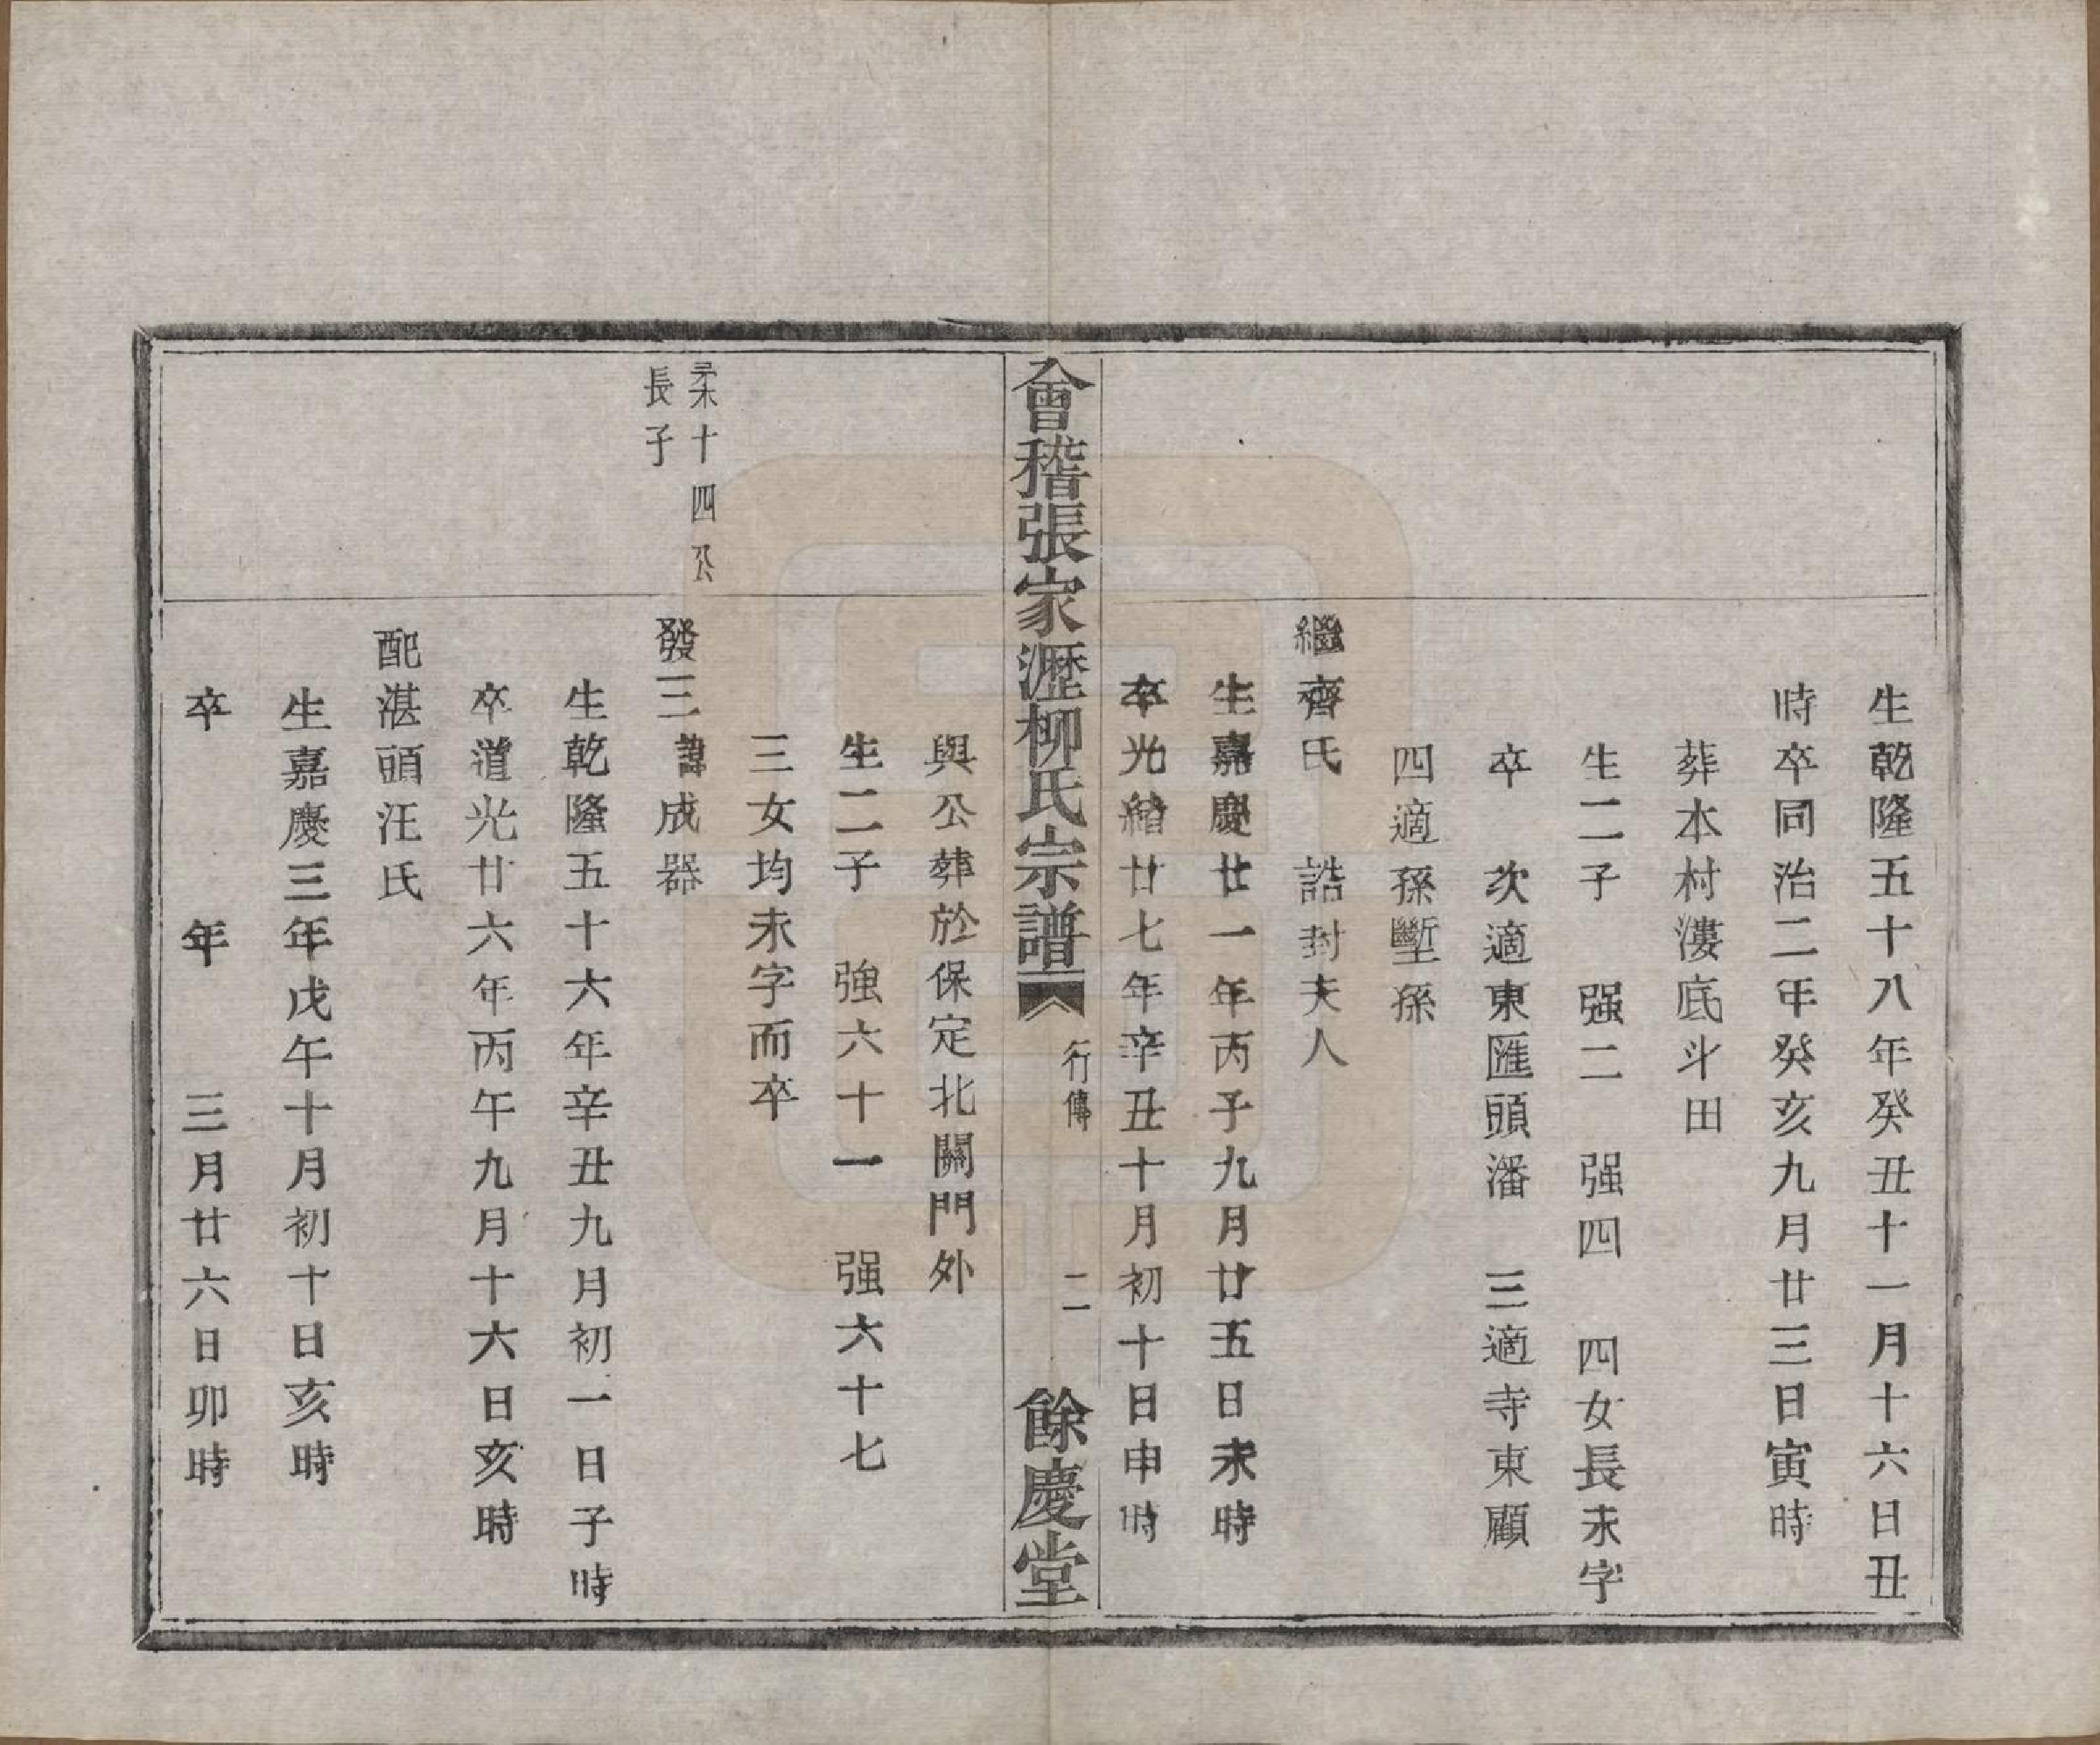 生乾隆五十八年癸丑十一月十六日丑
時卒同治二年癸亥九月廿三日寅時
葬本村漊底斗田
生二子　强二　强四　四女長未字
卒　次適東匯頭潘　三適寺東顧
四適孫壍孫
繼齊氏　誥封夫人
生嘉慶廿一年丙子九月廿五日未時
卒光緒廿七年辛丑十月初十日申時
會稽張家瀝柳氏宗譜　行傳　二　餘慶堂
與公葬於保定北關門外
生二子　強六十一　强六十七
三女均未字而卒
柔十四公
長子
發三諱成器
生乾隆五十六年辛丑九月初一日子時
卒道光廿六年丙午九月十六日亥時
配湛頭汪氏
生嘉慶三年戊午十月初十日亥時
卒　年　三月廿六日卯時